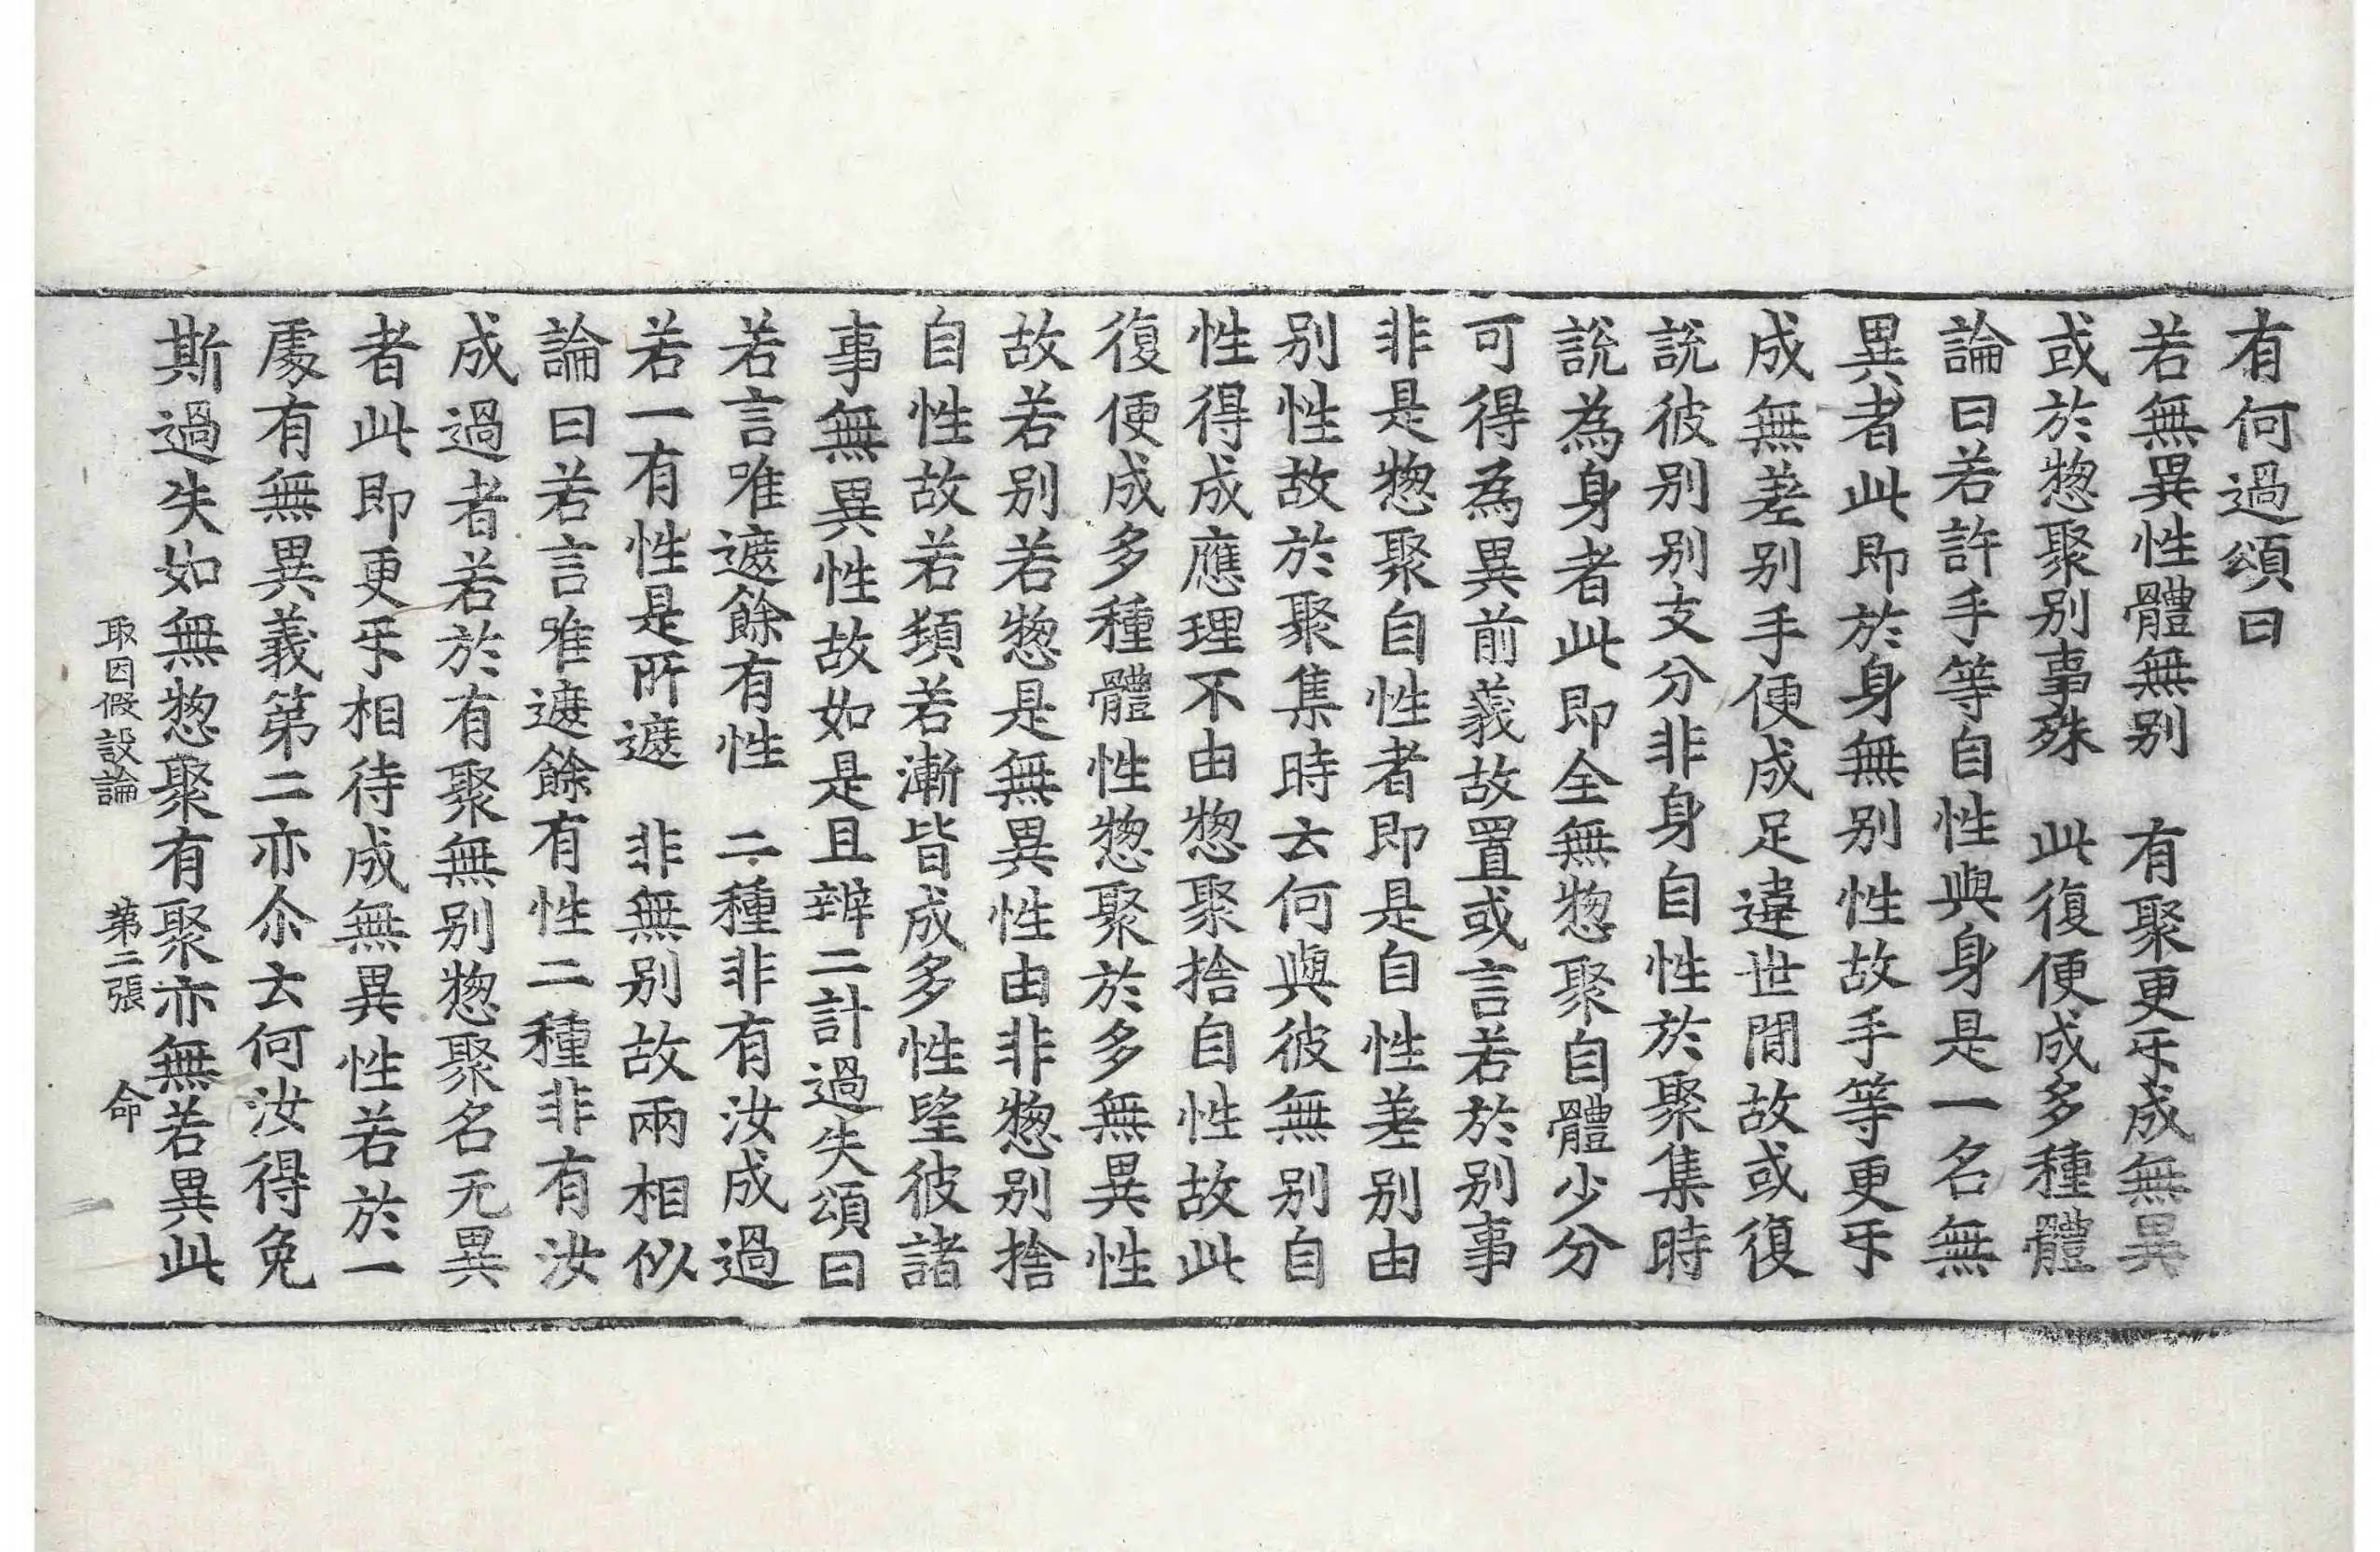 有何過頌曰
若無異性體無别　有聚更㸦成無異
或於惣聚别事殊　此復便成多種體
論曰若許手等自性與身是一名無
異者此即於身無别性故手等更㸦
成無差别手便成足違世閒故或復
說彼别别支分非身自性於聚集時
說為身者此即全無惣聚自體少分
可得為異前義故置或言若於别事
非是惣聚自性者即是自性差别由
别性故於聚集時云何與彼無别自
性得成應理不由惣聚捨自性故此
復便成多種體性惣聚於多無異性
故若别若惣是無異性由非惣别捨
自性故若頻若漸皆成多性望彼諸
事無異性故如是且辨二計過失頌曰
若言唯遮餘有性　二種非有汝成過
若一有性是所遮　非無别故兩相似
論曰若言唯遮餘有性二種非有汝
成過者若於有聚無别惣聚名无異
者此即更㸦相待成無異性若於一
處有無異義第二亦尒云何汝得免
斯過失如無惣聚有聚亦無若異此
取因假設論　第二張　命